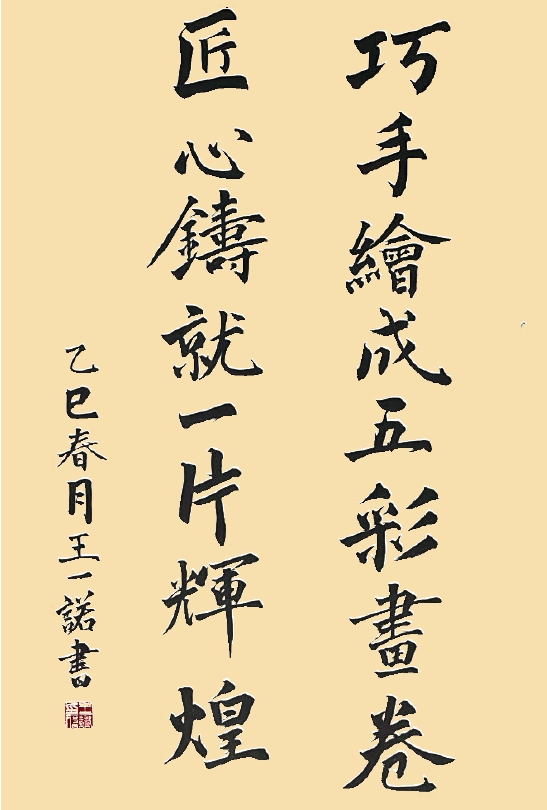 巧手繪成五彩畫卷
匠心鑄就一片輝煌
乙巳春月王一諾書